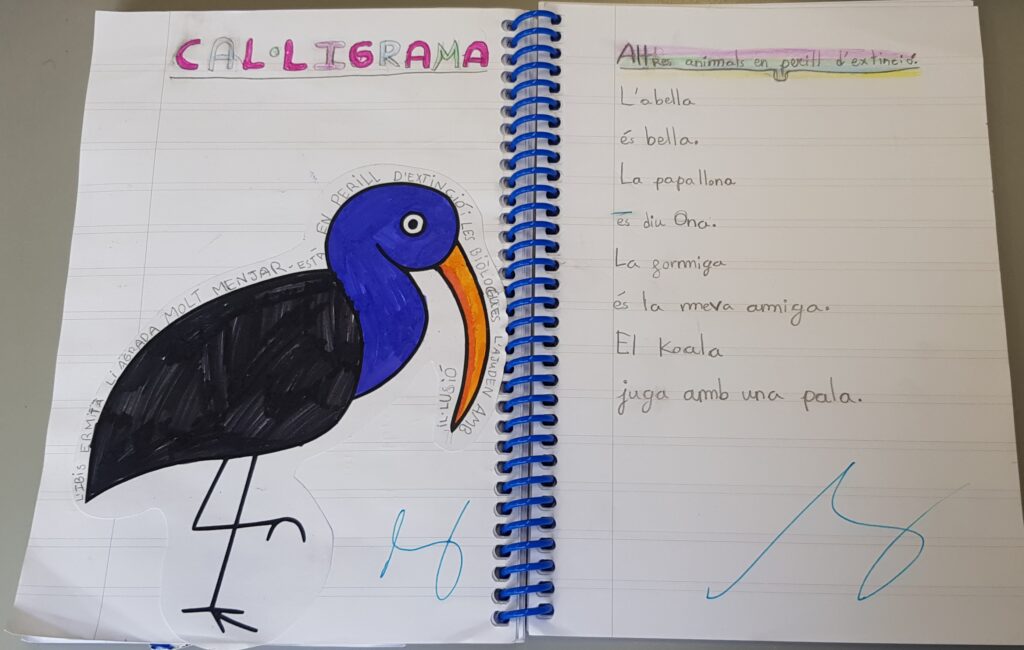 CAL·LIGRAMA
L'IBIS ERMITÀ LI AGRADA MOLT MENJAR-ESTÀ EN PERILL D'EXTINCIÓ i LES BIÒLOGUES L'AJUDEN AMB
iL·LUSIÓ
Alltres animals en perill d'extinció.
L'abella
és bella.
La papallona
es diu Ona.
La formiga
és la meva amiga.
El Koala
juga amb una pala.